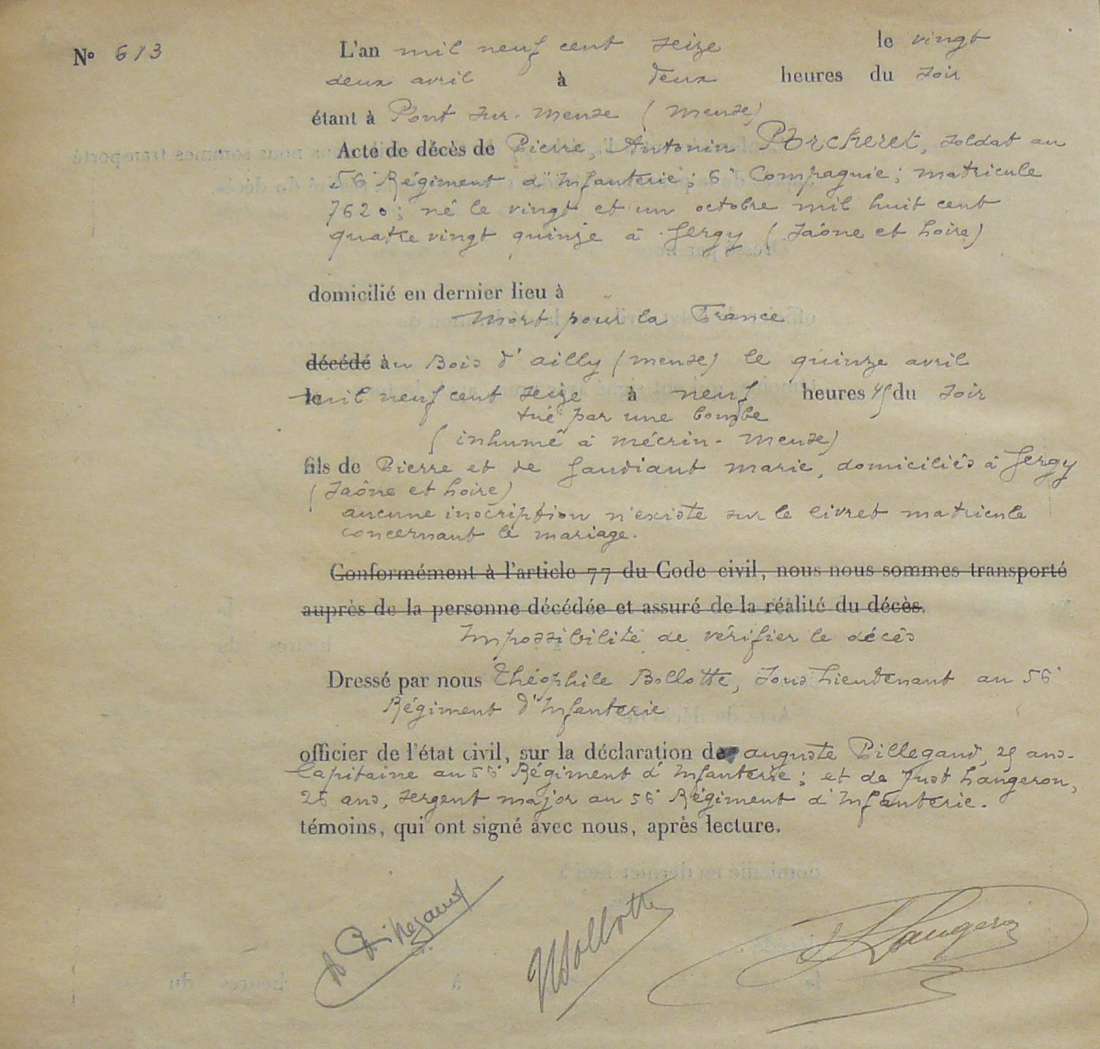 N° 613
L'an mil neuf cent seize le vingt
deux avril à deux heures du soir
étant à Pont sur-Meuse (Meuse)
Acte de décès de Pierre, Antonin Porcheret, soldat au
56e Régiment d'Infanterie; 6e Compagnie; matricule
7620; né le vingt et un octobre mil huit cent
quatre vingt quinze à Gergy (Saône et Loire)
domicilié en dernier lieu à
Mort pour la France
décédé au Bois d'Ailly (Meuse) le quinze avril
le mil neuf cent seize à neuf heures 45 du soir
tué par une bombe
(inhumé à Mécrin-Meuse)
fils de Pierre et de Gaudiaut Marie, domiciliés à Gergy
(Saône et Loire)
aucune inscription n'existe sur le livret matricule
concernant le mariage.
Conformément à l'article 77 du Code civil, nous nous sommes transporté
auprès de la personne décédée et assuré de la réalité du décès.
Impossibilité de vérifier le décès
Dressé par nous Théophile Bollotte, Sous Lieutenant au 56e
Régiment d'Infanterie
officier de l'état civil, sur la déclaration de auguste Pillegand, 25 ans-
Capitaine au 56e Régiment d'Infanterie; et de Just Laugeron,
26 ans, sergent major au 56e Régiment d'Infanterie.
témoins, qui ont signé avec nous, après lecture.
A Pillegand Bollotte Laugeron